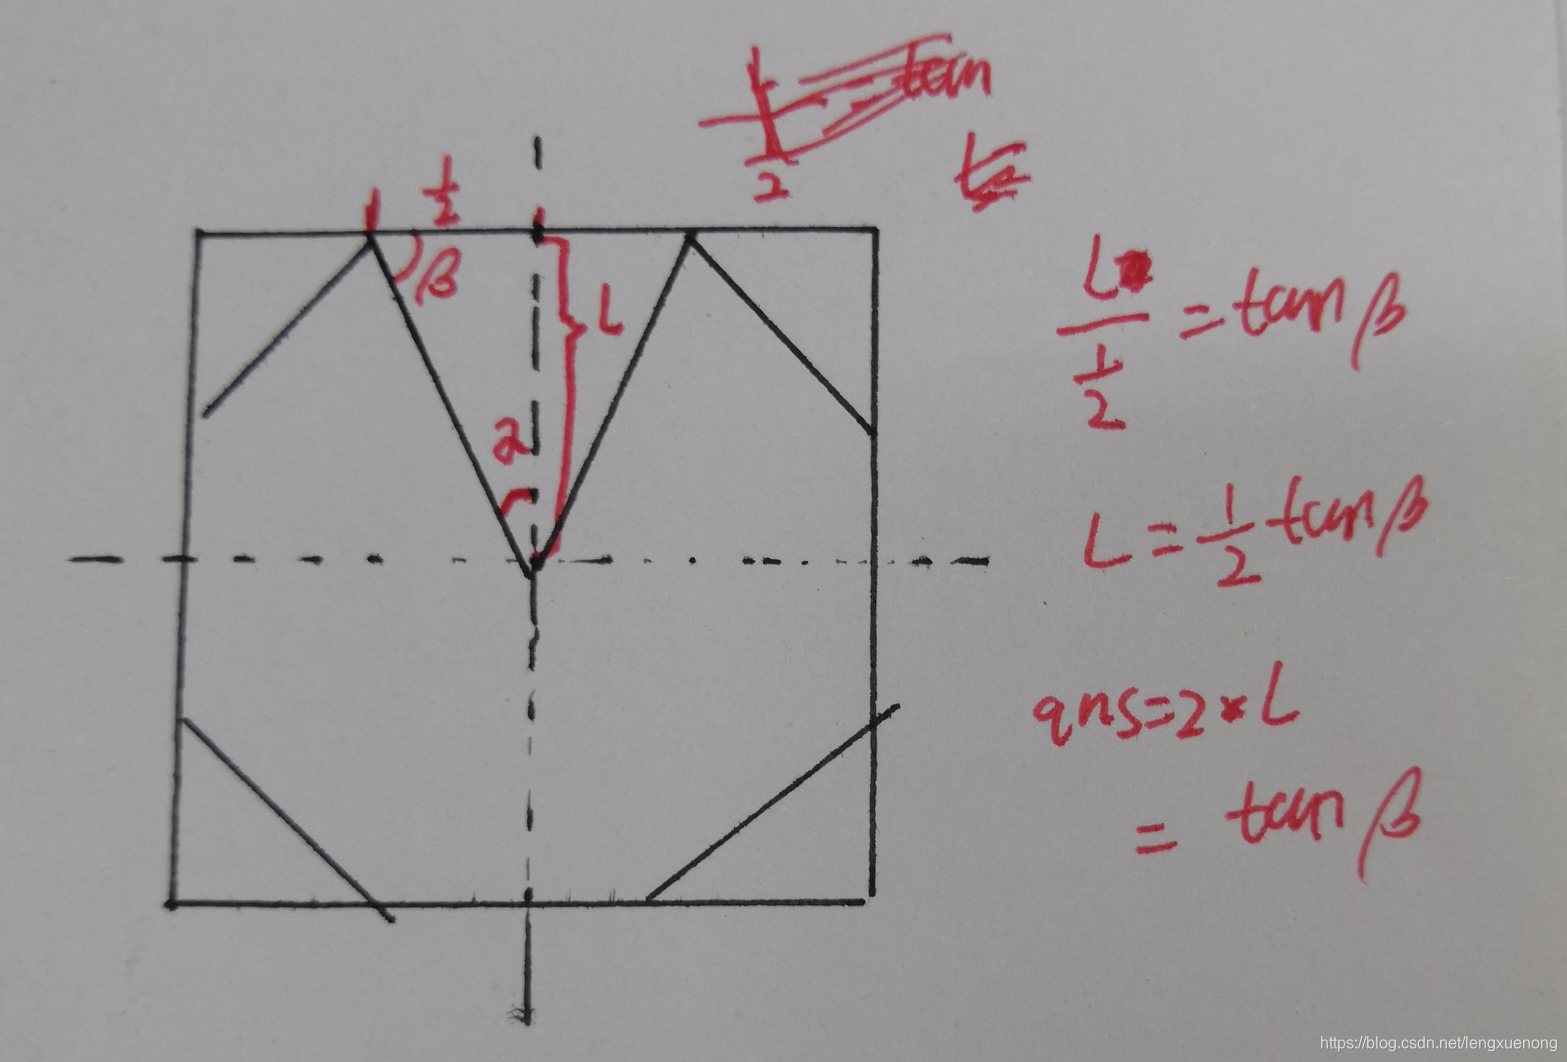 tan
2
1/2
β
L
2
L/(1/2) = tan β
L = 1/2 tan β
ans=2*L
= tan β
https://blog.csdn.net/lengxuenong